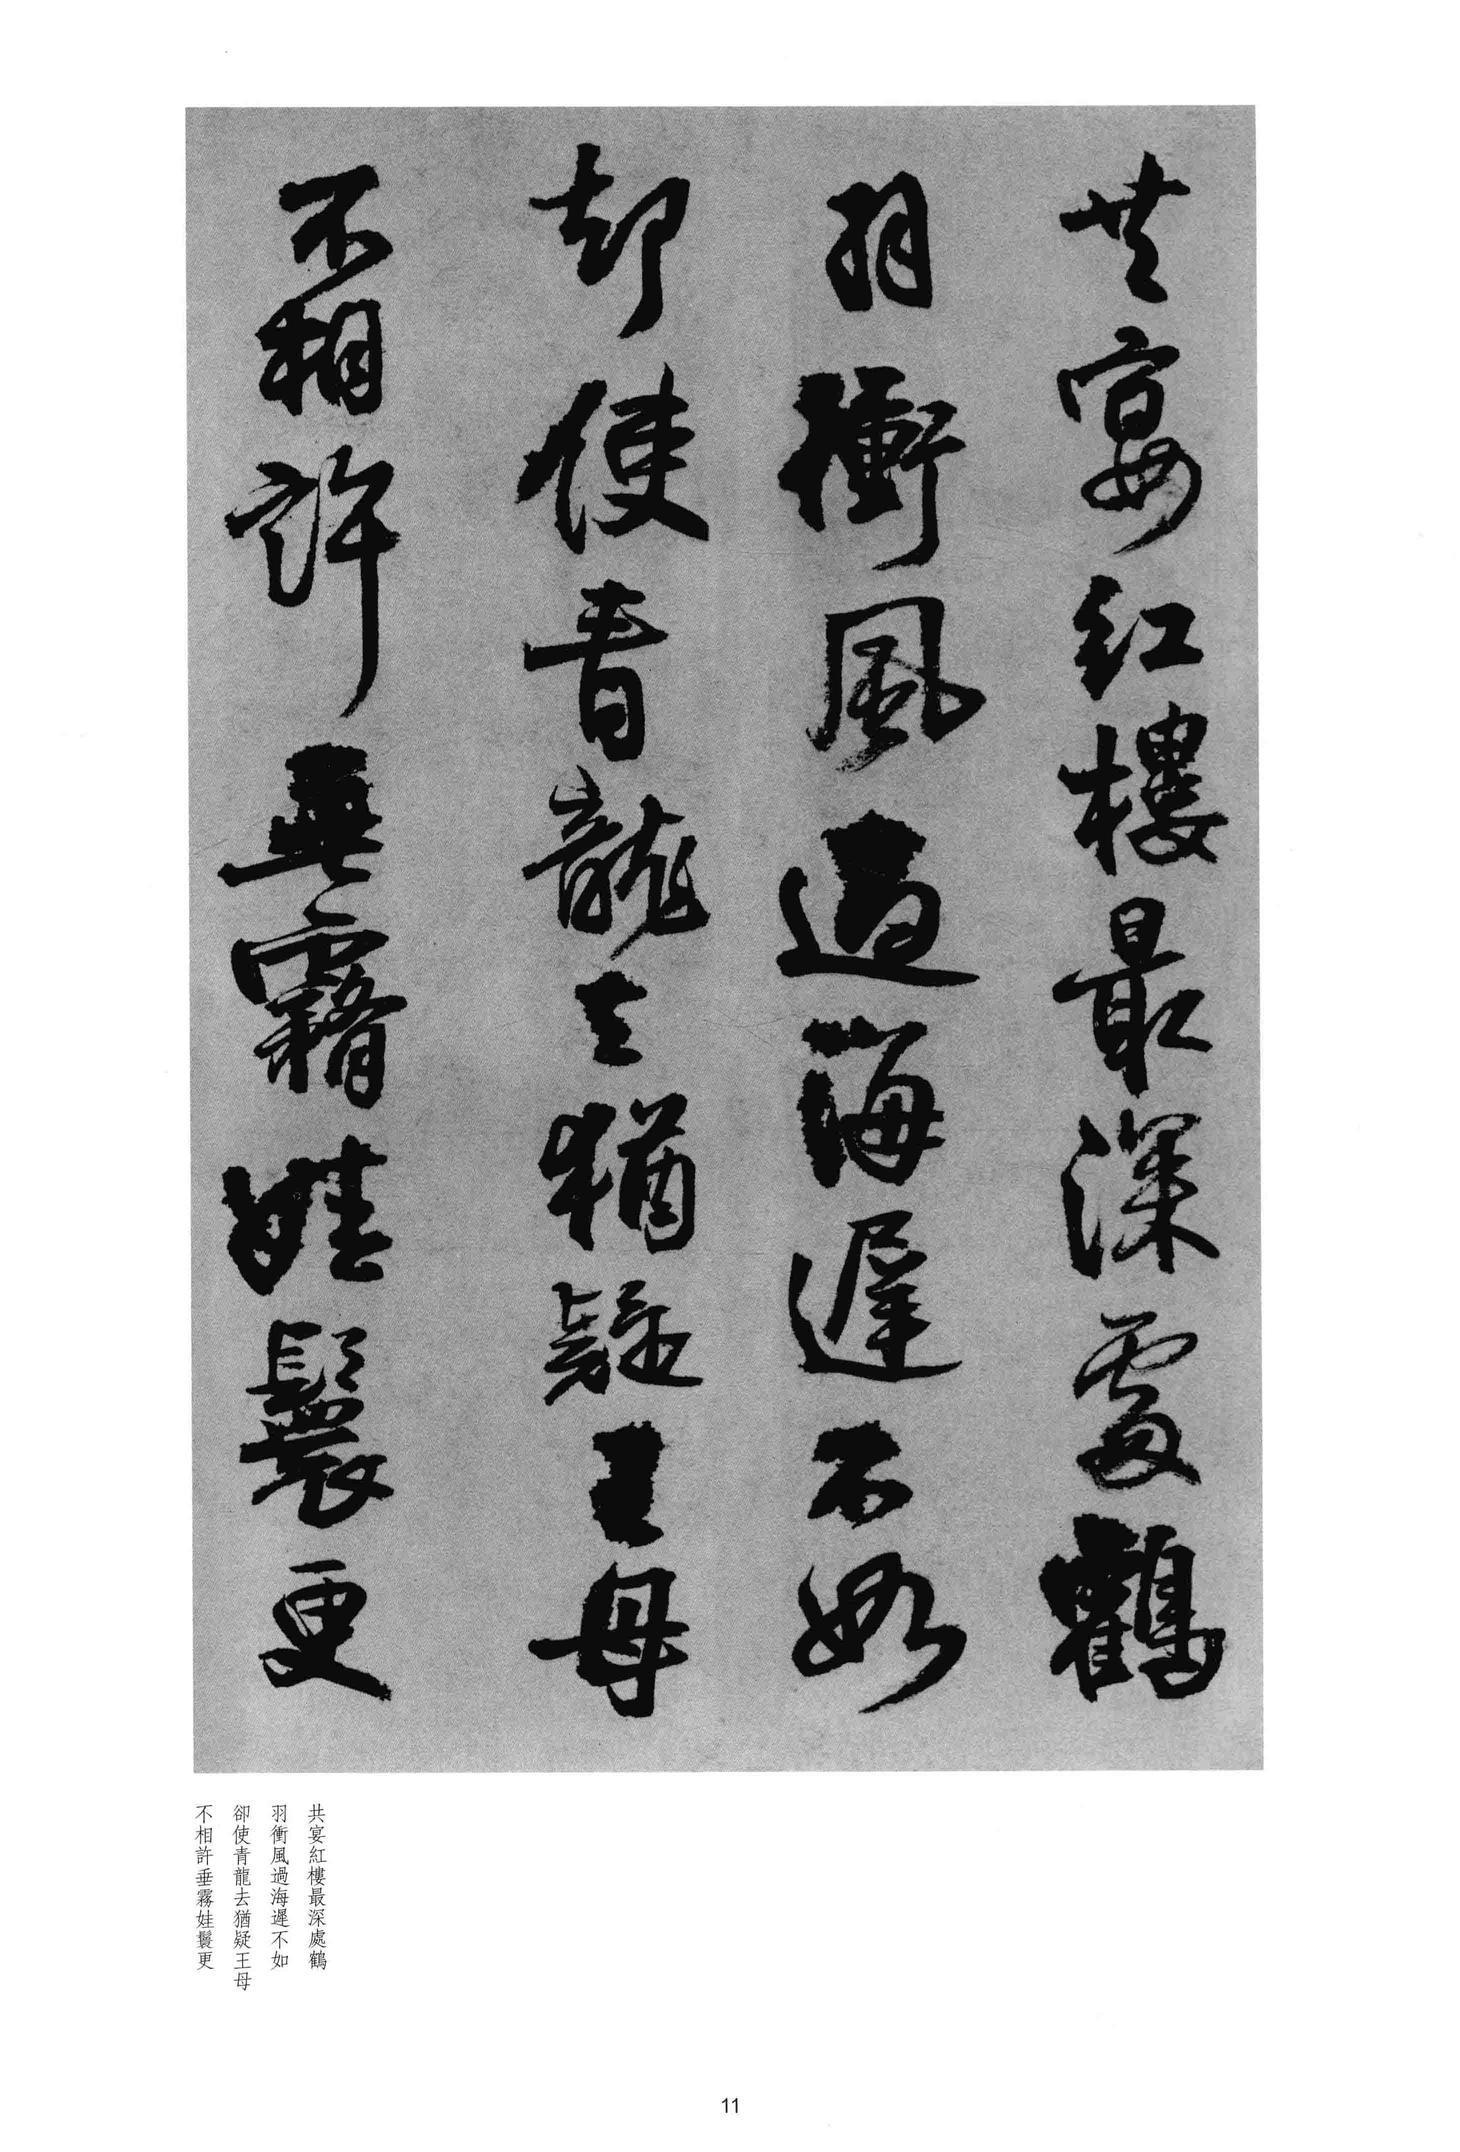 共宴紅樓最深處鶴
羽衝風過海遲不如
却使青龍去猶疑王母
不相許垂霧娃鬟更
共宴紅樓最深處鶴
羽衝風過海遲不如
卻使青龍去猶疑王母
不相許垂霧娃鬟更
11